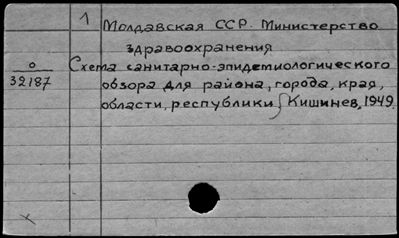 1 Молдавская ССР. Министерство
здравоохранения
о
32187
Схема санитарно-эпидемиологического
обзора для района, города, края,
области, республики Кишинев, 1949.